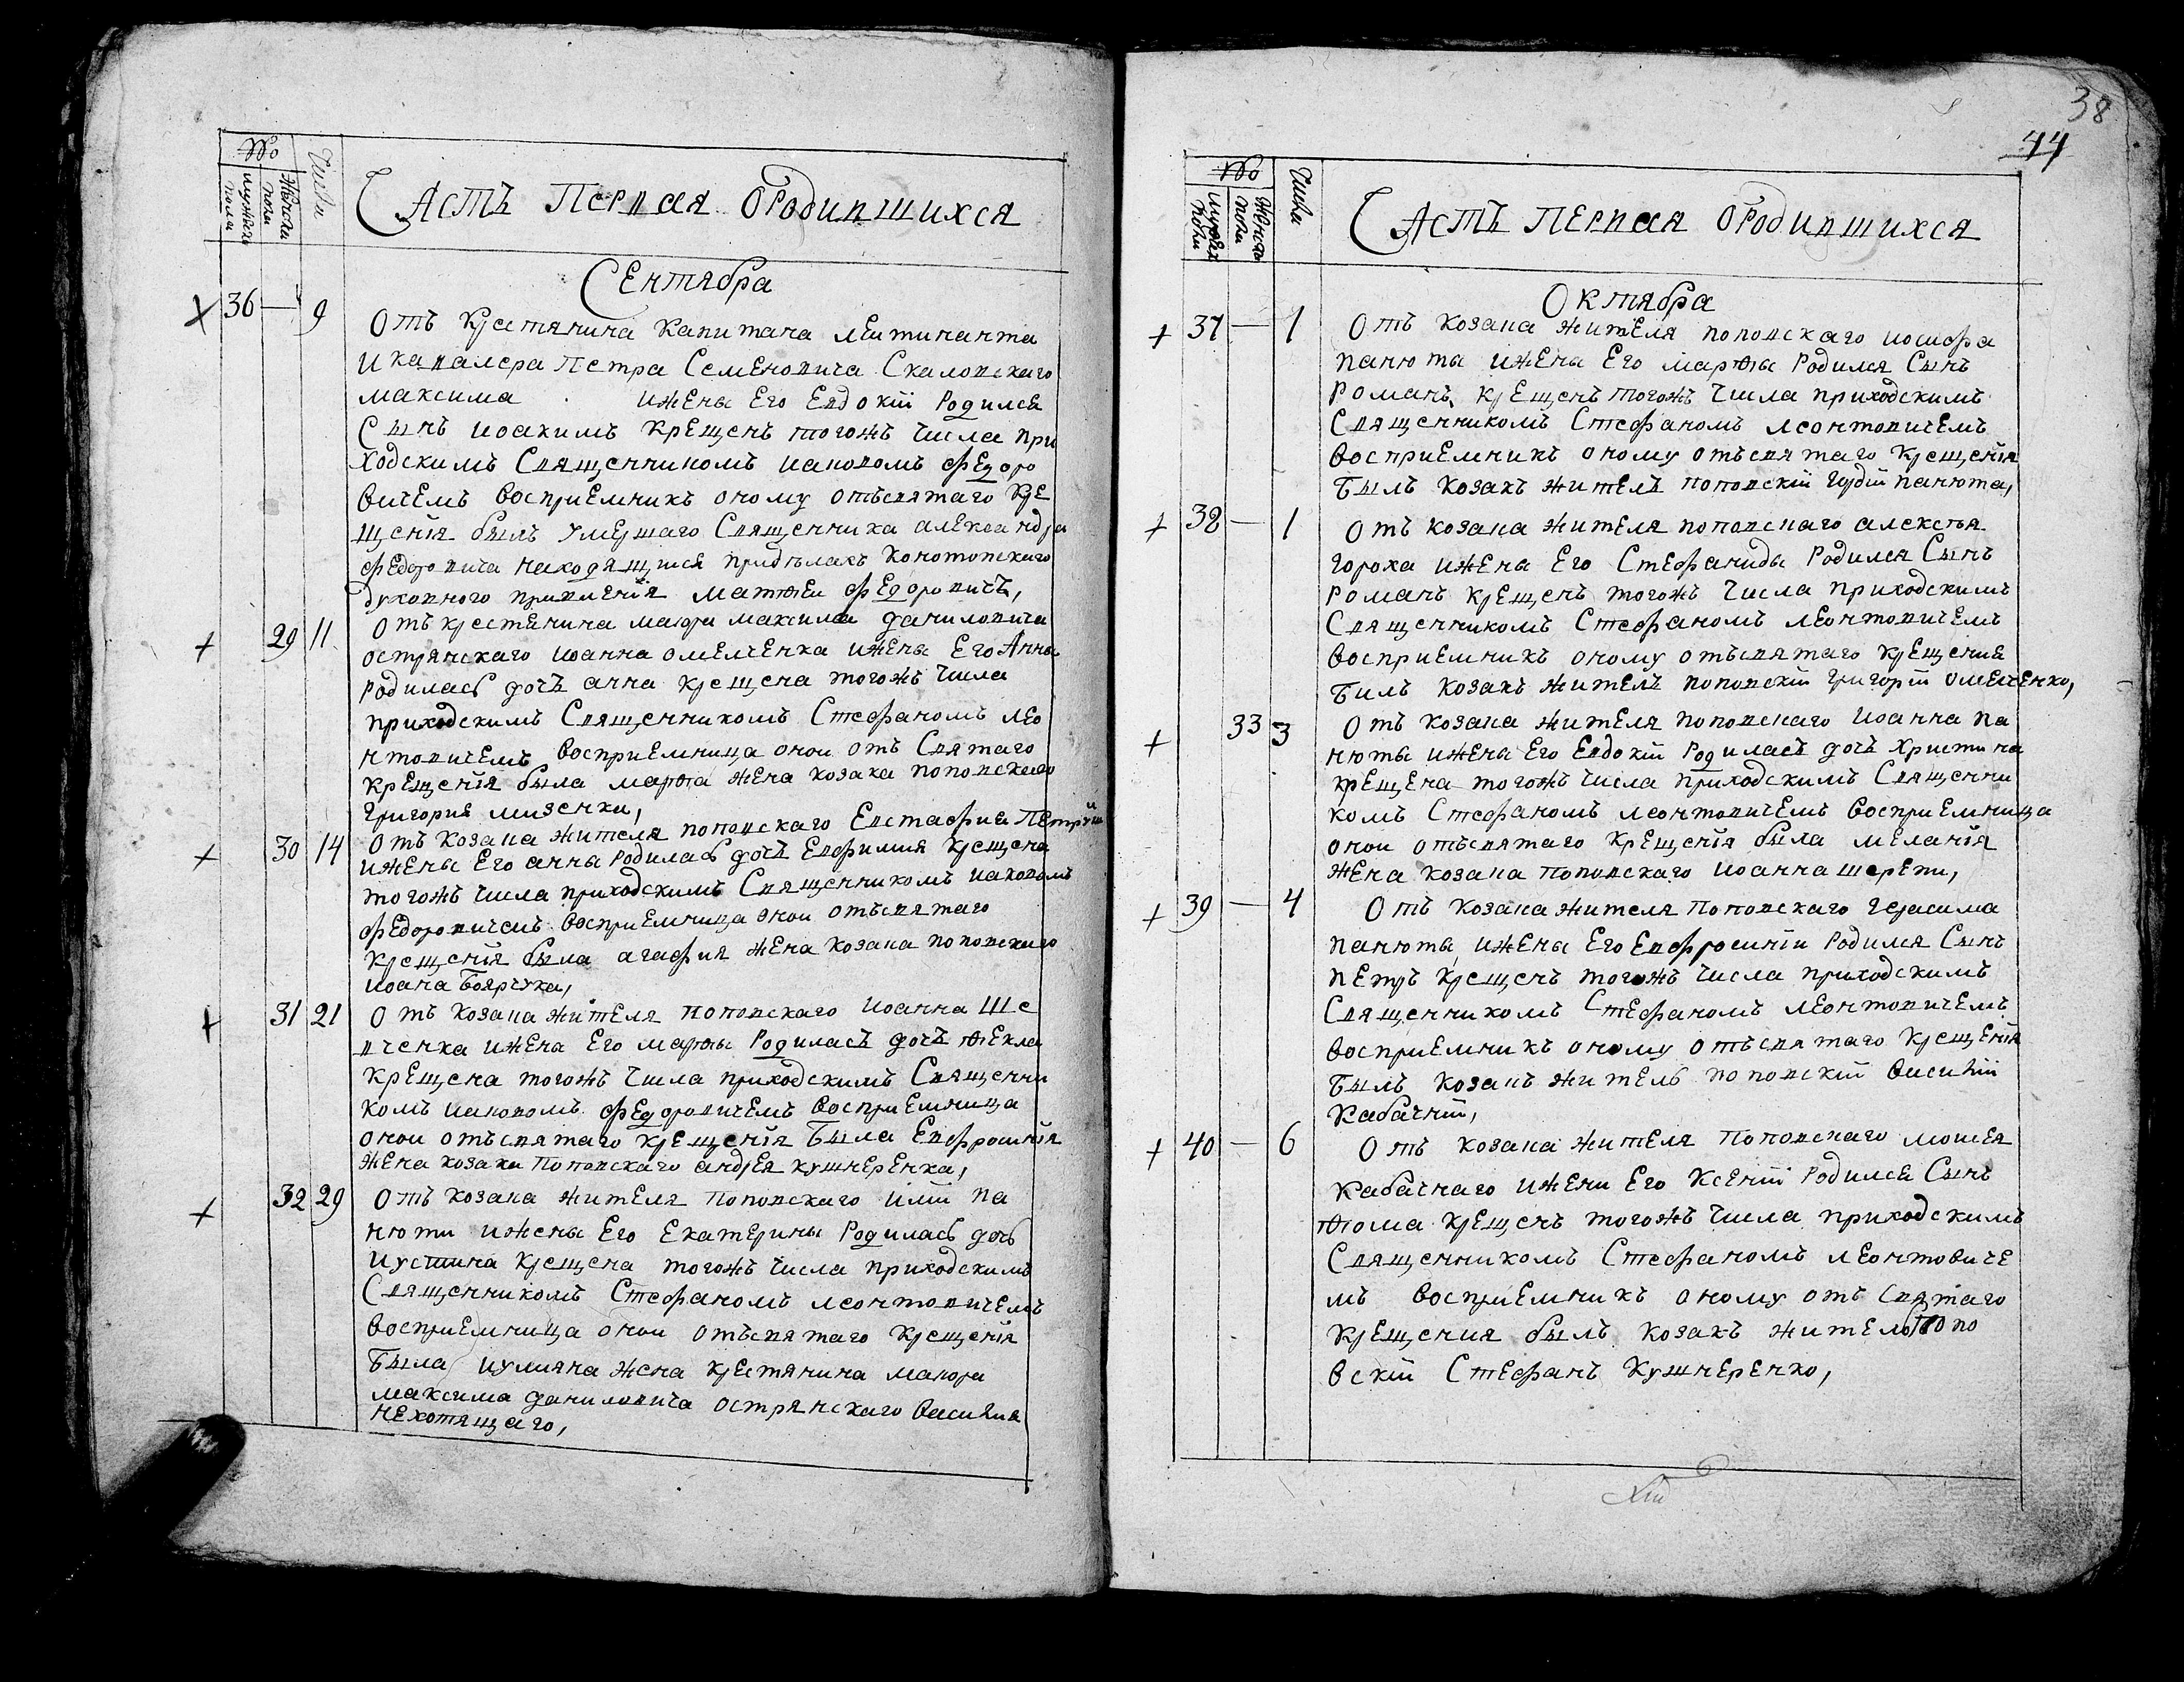 №
мужеска полу
Женска полу
Числа
Часть Первая ородившихся
Сентября
36 — 9 Отъ Крестянина капитана леитинанта
икавалера Петра Семеновича Скаловскаго
максима ижены Его Евдокіи Родился
Сынъ иоакимъ Крещенъ тогожъ числа при
ходскимъ Священникомъ иаковомъ федоро
вичемъ восприемникъ оному отъсвятаго Кре
щенія былъ умершаго Священника александра
федоровича находящися придѣлахъ конотопскаго
духовного правленія матѳеи федоровичъ,
29 11 Отъ крестянина маиора максима даниловича
острянскаго иоанна омелченка ижены Его Анны
Родилась дочь анна крещена тогожъ числа
приходскимъ Священникомъ Стефаномъ лео
нтовичемъ восприемница онои отъ Святаго
Крещенія была марѳа жена козака поповскаго
григория мизенки,
30 14 Отъ козака жителя поповскаго Евстафиа
ижены Его анны родилась дочь Евфимия крещена
тогожъ числа приходскимъ Священникомъ иаковомъ
федоровичемъ восприемница онои отъсвятаго
Крещенія была агафия жена козака поповскаго
иоана Боярчука,
31 21 Отъ козака жителя поповскаго иоанна Ше
вченка ижена Его марѳы Родилась дочь ѳекла
крещена тогожъ числа приходскимъ Священни
комъ иаковомъ федоровичемъ восприемница
онои отъсвятаго крещенія Была Евфросинія
жена козака поповскаго андрея кушнеренка,
32 29 Отъ козака жителя поповскаго илии па
нюти ижены Его Екатерины Родилась дочь
иустина крещена тогожъ числа приходскимъ
Священникомъ Стефаномъ леонтовичемъ
восприемница онои отъсвятаго крещенія
Была иулияна жена крестянина маиора
максима даниловича острянскаго василия
нехотящаго,
38
44
№
мужеск полу
Женск полу
Числа
Часть первая ородившихся
Октября
37 — 1 Отъ козака жителя поповскаго иосифа
панюты ижены Его марѳы Родился Сынъ
романъ, крещенъ тогожъ числа приходскимъ
Священникомъ Стефаномъ леонтовичемъ
восприемникъ оному отъсвятаго крещенія
Былъ козакъ житель поповскіи панюта,
38 — 1 Отъ козака жителя поповскаго алексѣя
гороха ижена Его Стефаниды Родился Сынъ
романъ крещенъ тогожъ числа приходскимъ
Священникомъ Стефаномъ леонтовичемъ
восприемникъ оному отъсвятаго крещения
Билъ козакъ житель поповскіи григоріи омелченко,
33 3 Отъ козака жителя поповскаго иоанна па
нюты ижена Его Евдокіи Родилась дочь Христина
крещена тогожъ числа приходскимъ Священни
комъ Стефаномъ леонтовичемъ восприемница
онои отъсвятаго крещенія была меланія
жена козака поповскаго иоанна шерети,
39 — 4 Отъ козака жителя поповскаго герасима
панюты, ижены Его Евфросиніи Родился Сынъ
петръ крещенъ тогожъ числа приходскимъ
Священникомъ Стефаномъ леонтовичемъ
восприемникъ оному отъсвятаго крещенія
Былъ козакъ житель поповскіи василіи
Кабачніи,
40 — 6 Отъ козака жителя поповскаго моисея
кабачнаго ижени Его Ксеніи Родился Сынъ
ѳома крещенъ тогожъ числа приходскимъ
Священникомъ Стефаномъ леонтовиче
мъ восприемникъ оному отъ святаго
крещения былъ козакъ житель попо
вскіи Стефанъ Кушнеренко,